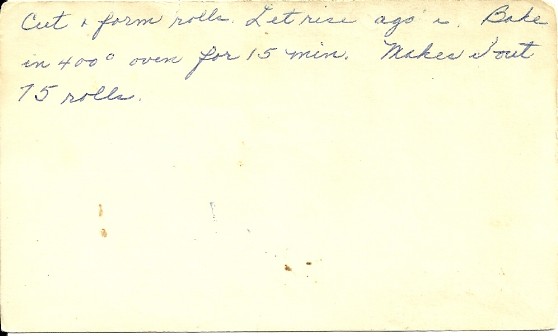 Cut & form rolls. Let rise again. Bake
in 400° oven for 15 min. Makes about
75 rolls.